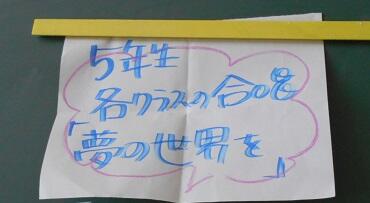 5年生
各クラスの合唱
「夢の世界を」